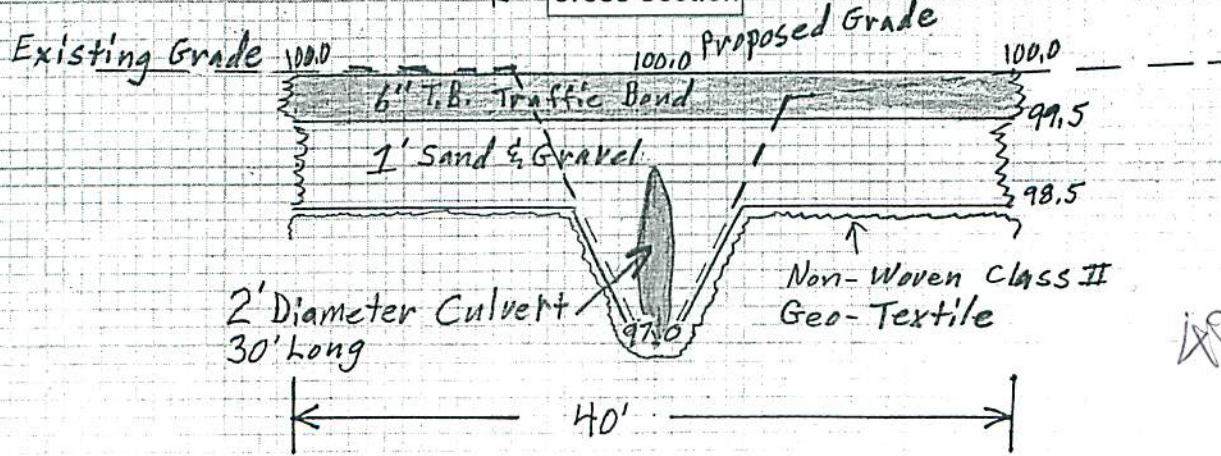 Cross Section
Existing Grade
100.0
100.0
Proposed Grade
100.0
6" T.B. Traffic Bond
99.5
1' Sand & Gravel
98.5
2' Diameter Culvert
30' Long
97.0
Non-Woven Class II
Geo-Textile
40'